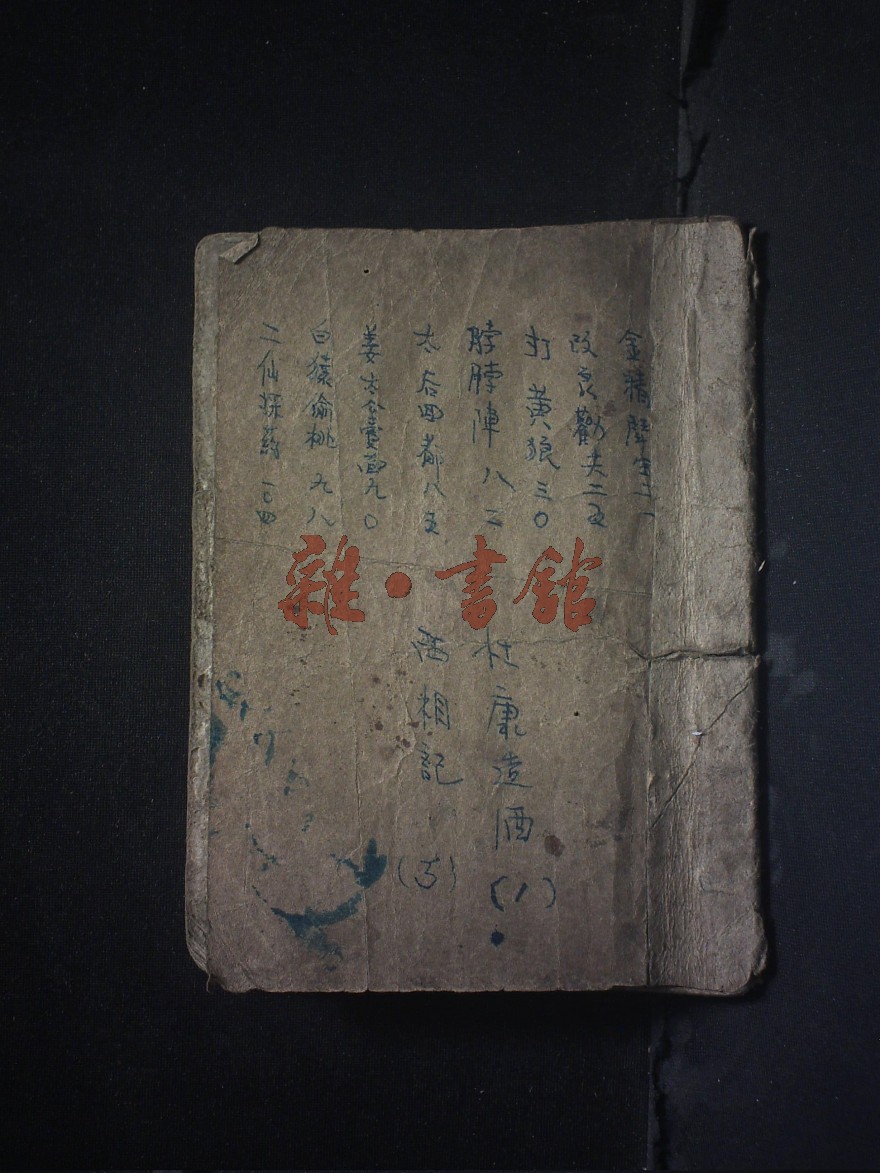 金精
改良勸夫二五
打黄狼三〇
脖脖陣八二
太后回都八五
姜太公賣面九〇
白猿偷桃九八
二仙採葯一〇四
杜康造酒(八)
相記
雜·書舘